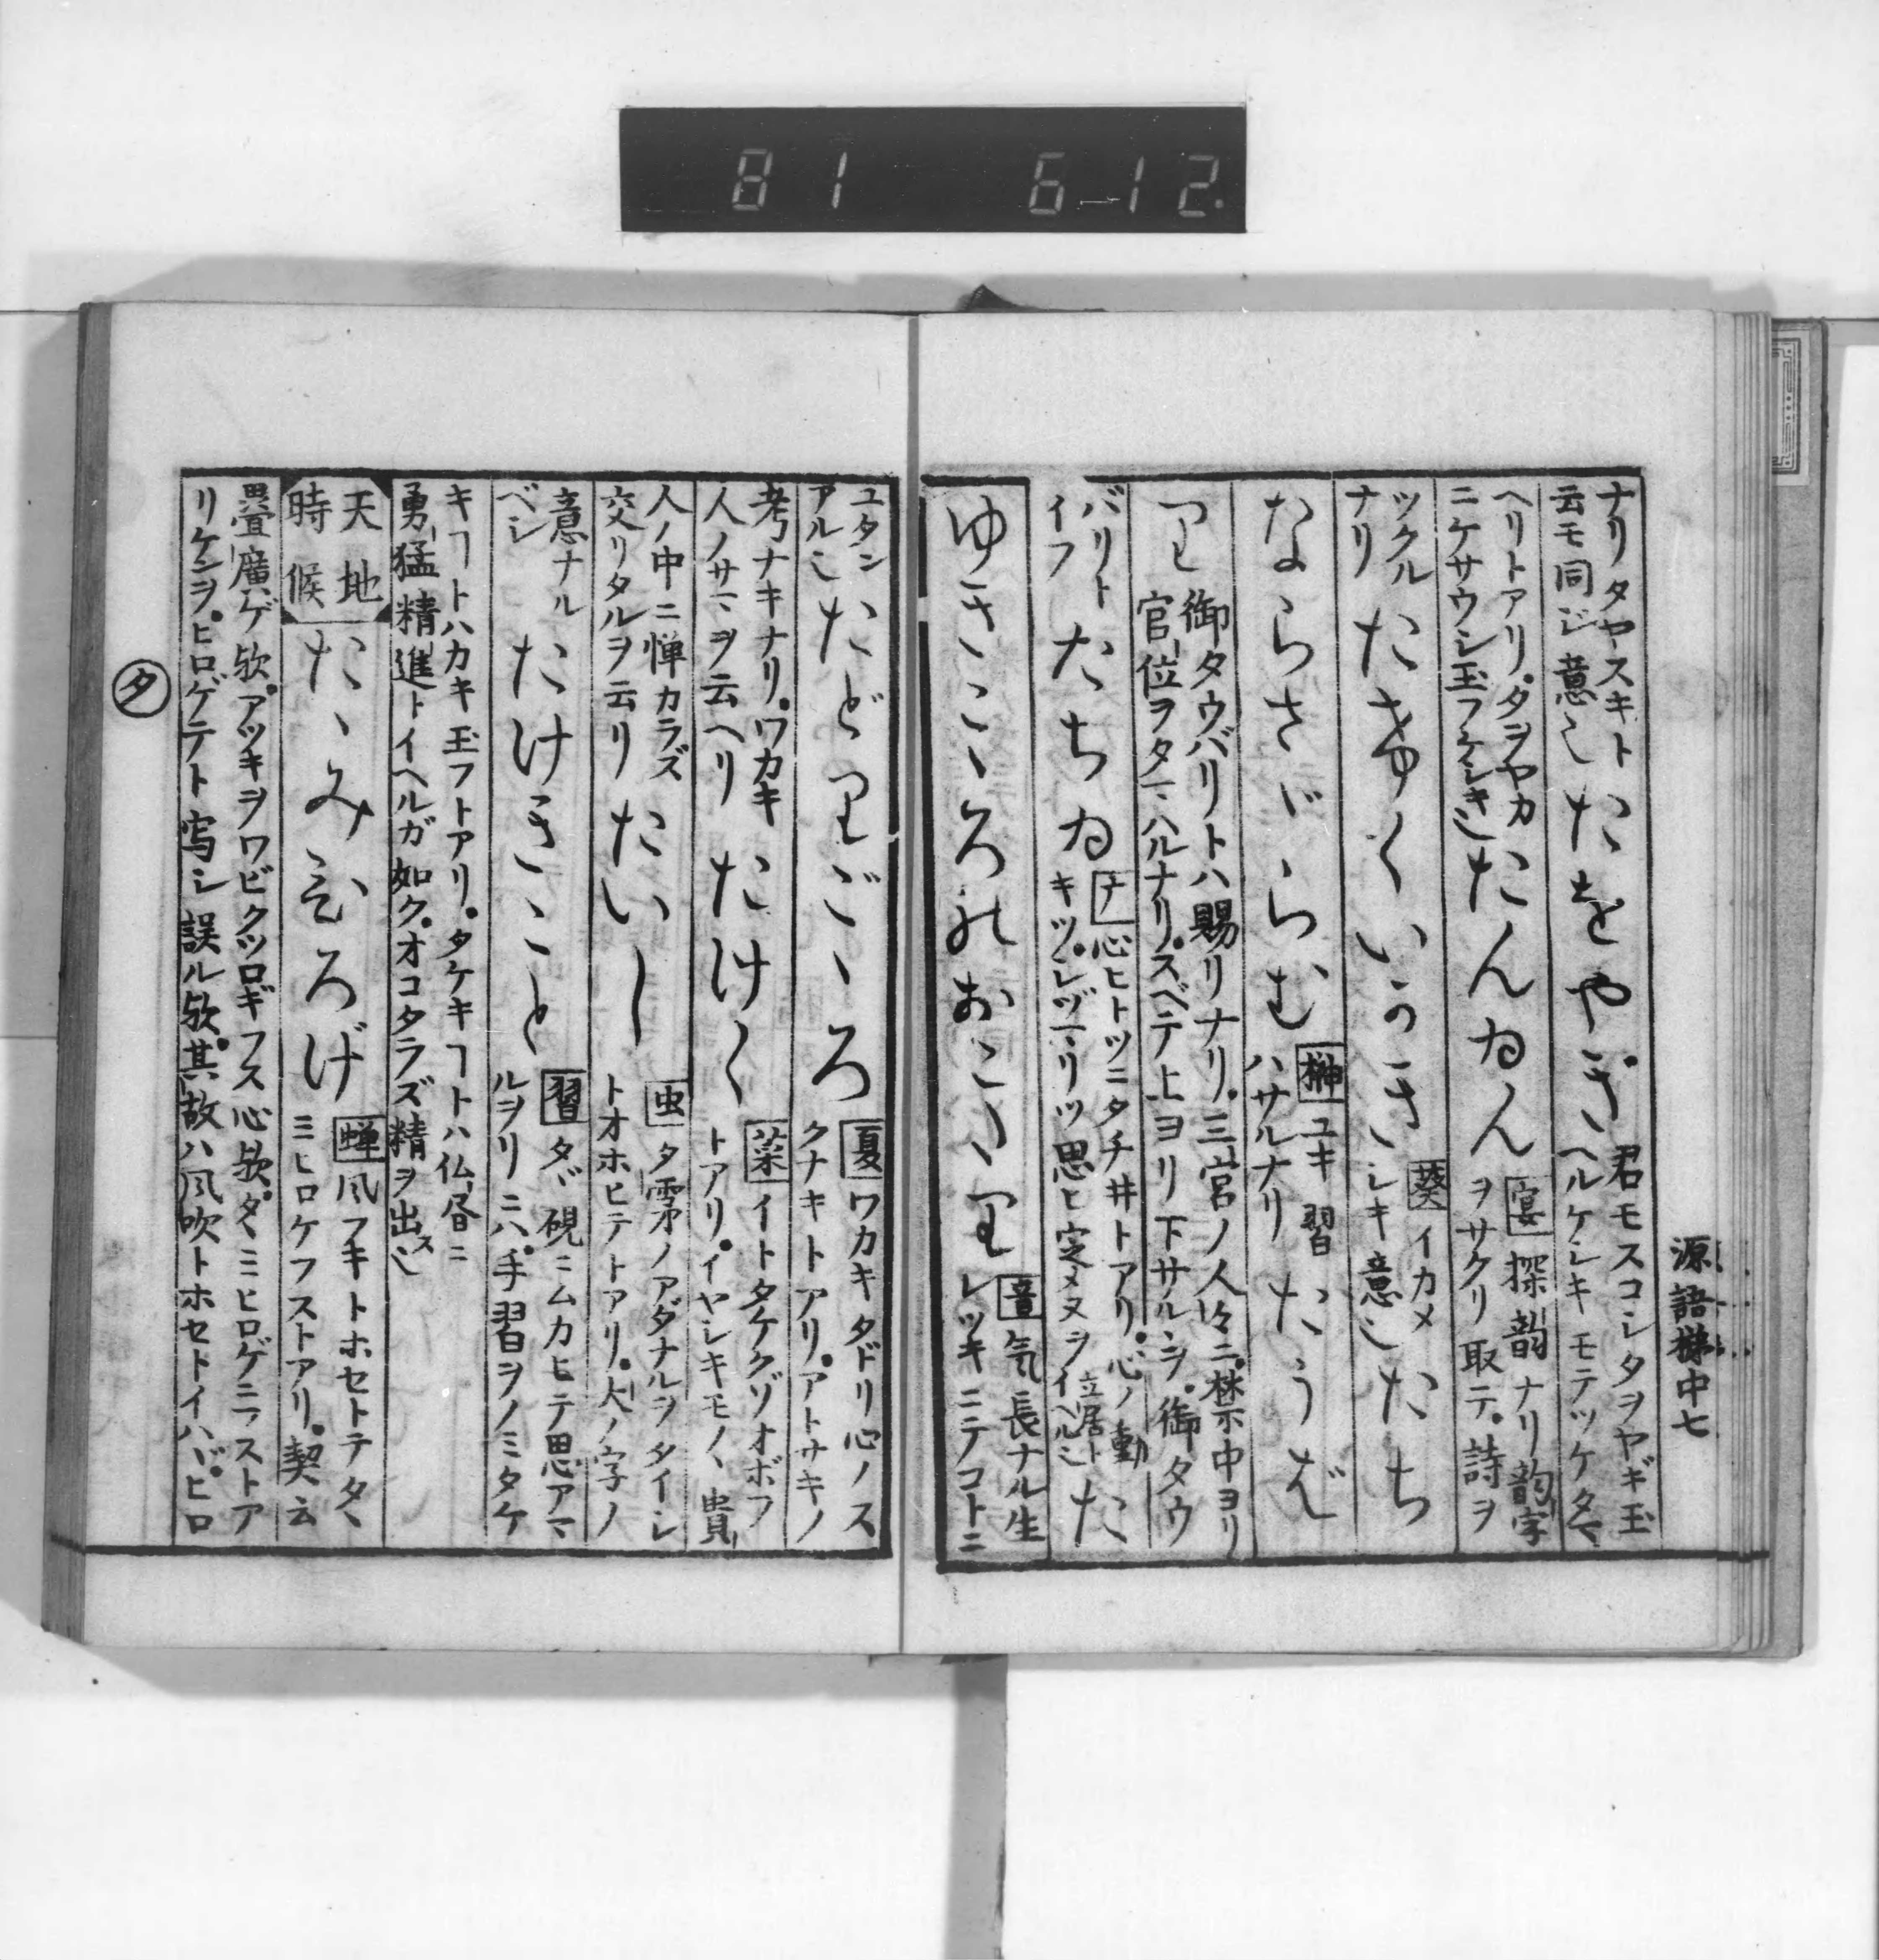 81 6-12.
源語梯中七
ナリタヤスキト
云モ同ジ意也
たをやぎ
君モスコシタヲヤギ玉
ヘルケシキモテツケタマ
ヘリトアリ。タヲヤカ
ニケサウシ玉フケシキ也
たんゐん
宴 探韵ナリ韵字
ヲサクリ取テ。詩ヲ
ツクル
ナリ
葵 イカメ
シキ意也
たち
ならさゞらむ
榊 ユキ習
ハサルナリ
たうば
り
御タウバリトハ賜リナリ。三宮ノ人々ニ。禁中ヨリ
官位ヲタマハルナリ。スベテ上ヨリ下サルヽヲ。御タウ
バリト
イフ
たちゐ
心ヒトツニタチ井トアリ。心ノ動
キツ。シヅマリツ思ヒ定メヌヲ
立居ト
イヘル也
た
ゆきこゝろのおこゝり
音 気長ナル生
レツキニテノコトニ
ユタン
アル也
たどりごゝろ
夏 ワカキタドリ心ノス
クナキトアリ。アトサキノ
考ナキナリ。ワカキ
人ノサマヲ云ヘリ
たけく
菜 イトタケクゾオボフ
トアリ。イヤシキモノヽ貴
人ノ中ニ憚カラズ
交リタルヲ云リ
たいし
虫
トオホヒテトアリ。大ノ字ノ
意ナル
ベシ
たけきこと
習 タヾ硯ニムカヒテ思アマ
ルヲリニハ。手習ヲノミタケ
キヿトハカキ玉フトアリ。タケキヿトハ仏昏ニ
勇猛精進トイヘルガ如ク。オコタラズ精ヲ出ス也
天地
時候
たゝみひろげ
蝉 風フキトホセトテタヽ
ミヒロケフストアリ。契云
畳廣ゲ欤。アツキヲワビクツロギフス心欤。タヽミヒロゲニフストア
リケンヲ。ヒロゲテト写シ誤ル欤。其故ハ風吹トホセトイハヾ。ヒロ
タ